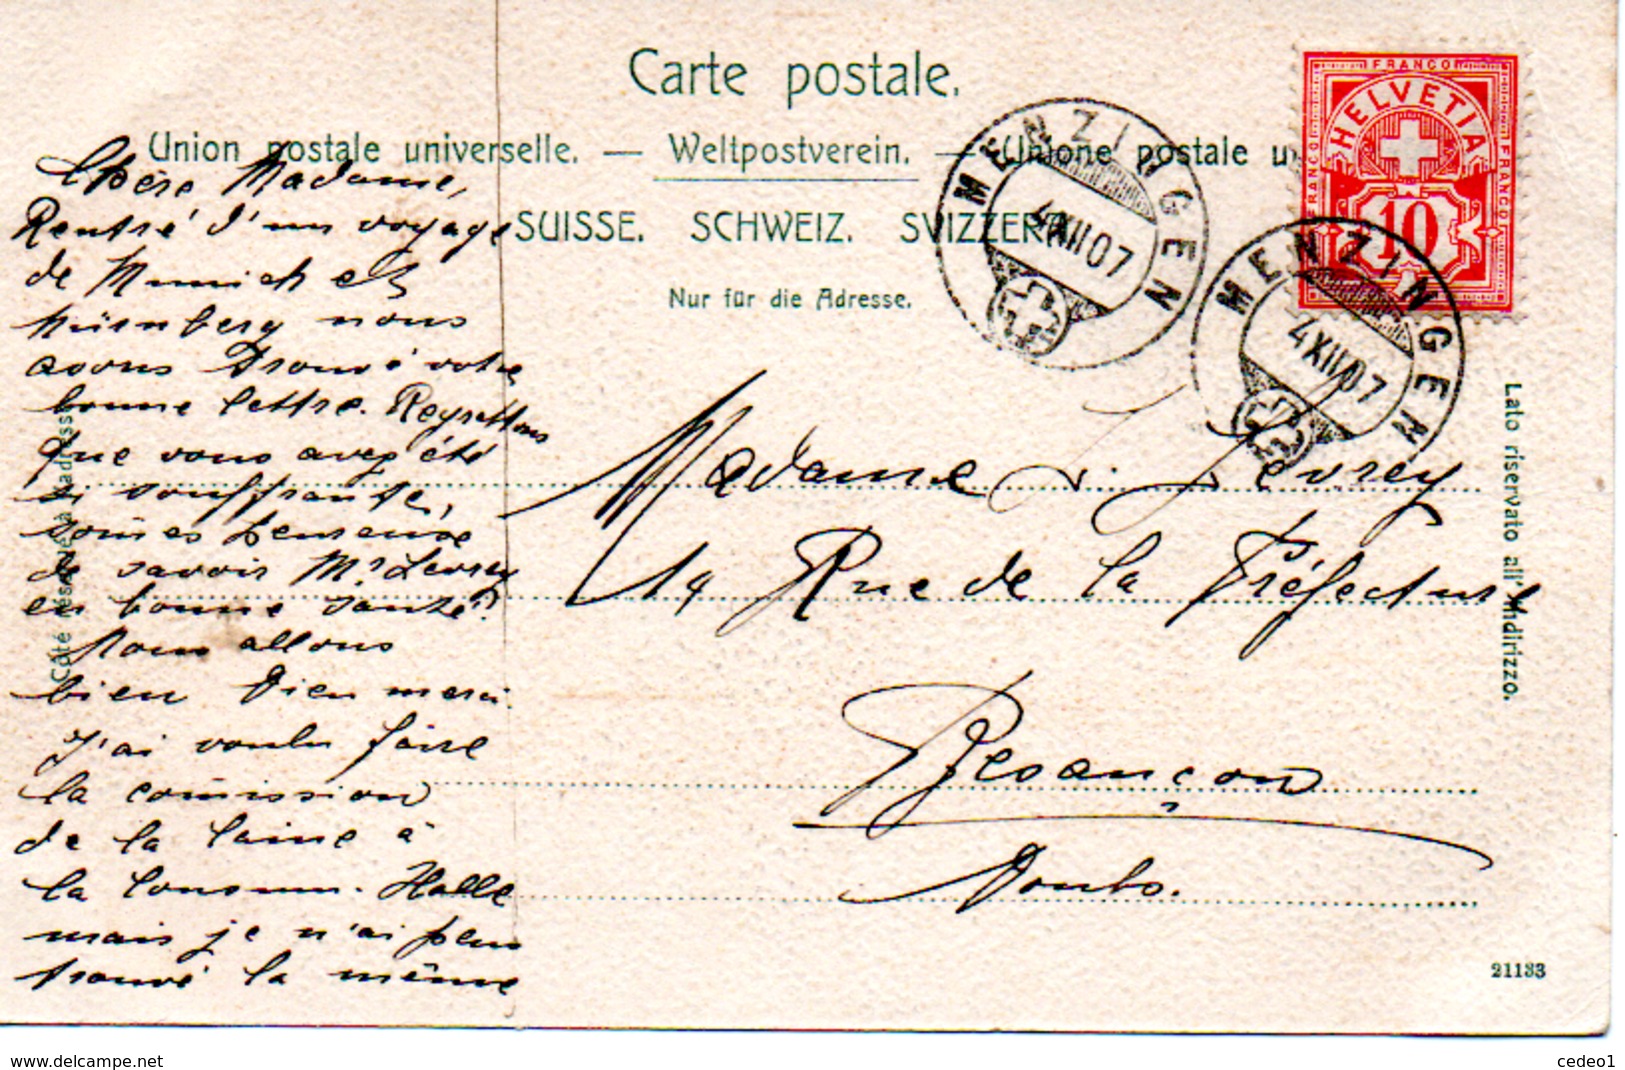 Carte postale.
Union postale universelle. — Weltpostverein. — Unione postale u
SUISSE. SCHWEIZ. SVIZZERA
Nur für die Adresse.
FRANCO
FRANCO
FRANCO
HELVETIA
10
MENZINGEN
4 XII 07
MENZINGEN
4 XII 07
Chère Madame,
Rentré d'un voyage
de Munich et
Nürnberg nous
avons trouvé votre
bonne lettre. Regrettons
que vous avez été
si souffrante,
som̄es heureuse
de savoir Mr Levrey
en bonne santé.
Nous allons
bien Dieu merci.
J'ai voulu faire
la com̄ission
de la laine à
la Consum. Halle
mais je n'ai peu
trouvé la même
Madame J. Levrey
14 Rue de la Préfecture
Besançon
Doubs.
Côté réservé à l'adresse
Lato riservato all' indirizzo.
21133
www.delcampe.net
cedeo1